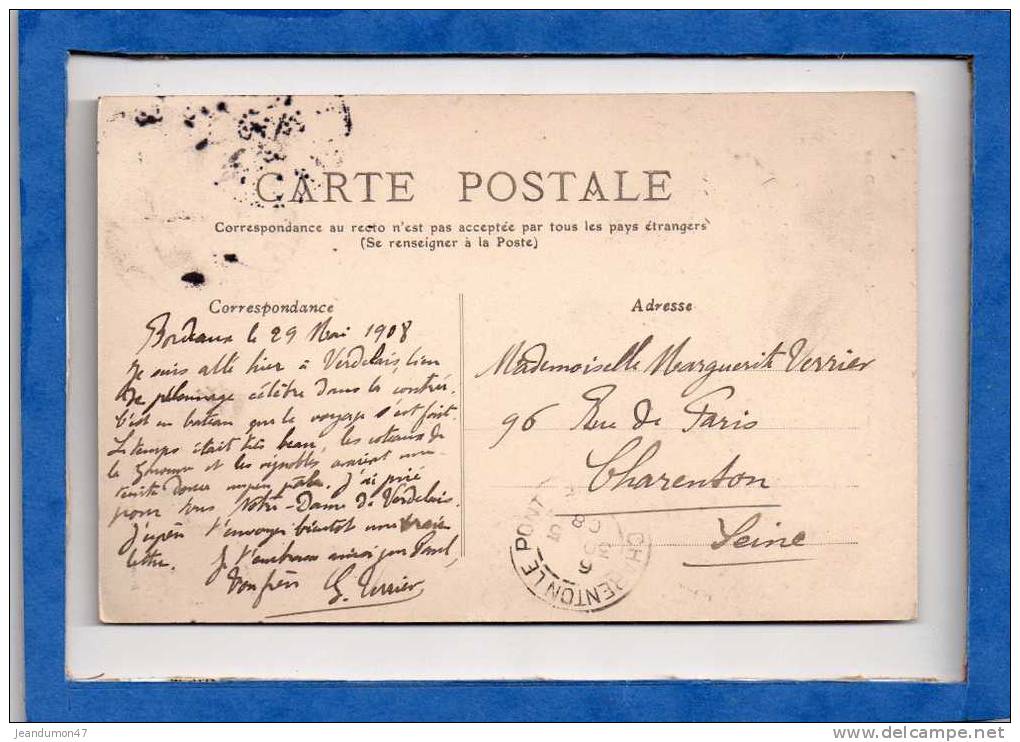 CARTE POSTALE
Correspondance au recto n'est pas acceptée par tous les pays étrangers
(Se renseigner à la Poste)
Correspondance
Bordeaux le 29 Mai 1908
Je suis allé hier à Verdelais, lieu
de pèlerinage célèbre dans la contrée.
C'est en bateau que le voyage s'est fait.
Le temps était très beau, les coteaux de
la Garonne et les vignobles avaient une
teinte douce un peu pâle. J'ai prié
pour tous Notre-Dame de Verdelais.
J'espère t'envoyer bientôt une vraie
lettre. Je t'embrasse ainsi que Paul,
Ton frère G. Verrier
Adresse
Mademoiselle Marguerite Verrier
96 Rue de Paris
Charenton
Seine
CHARENTON LE PONT
jeandumon47
delcampe.net